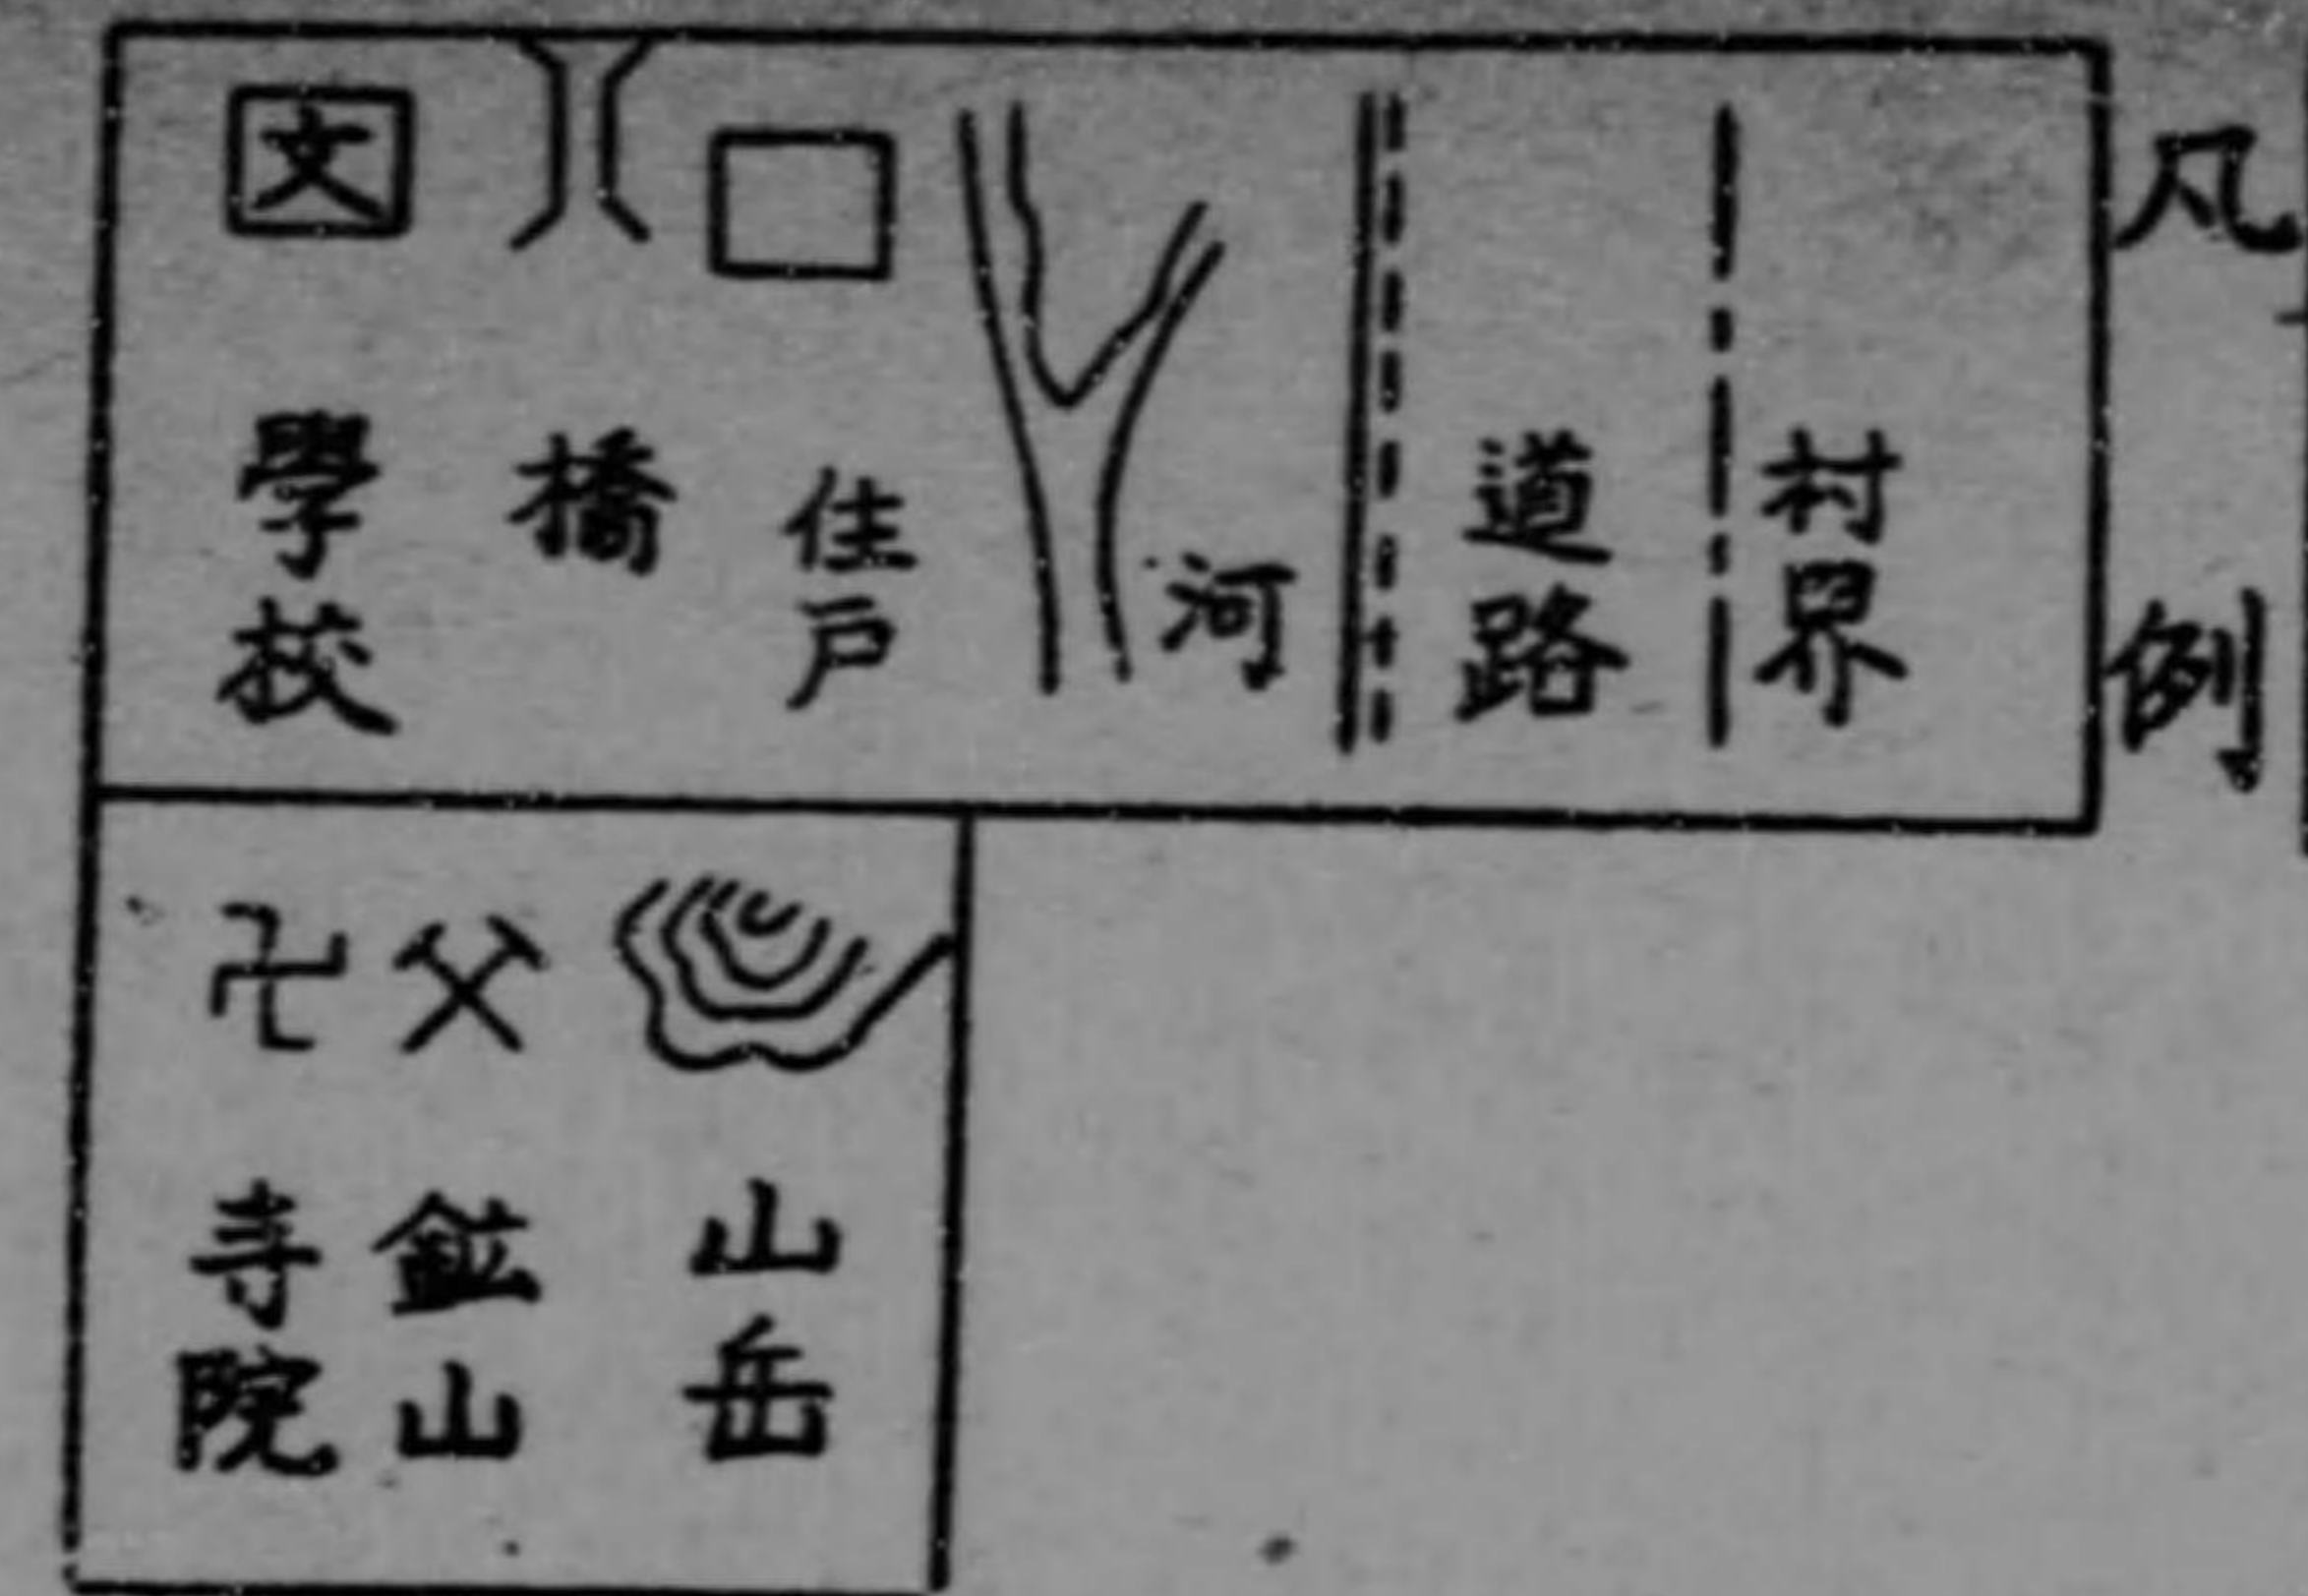 凡例
村界
道路
河
住戸
橋
文
學校
山岳
鉱山
卍
寺院